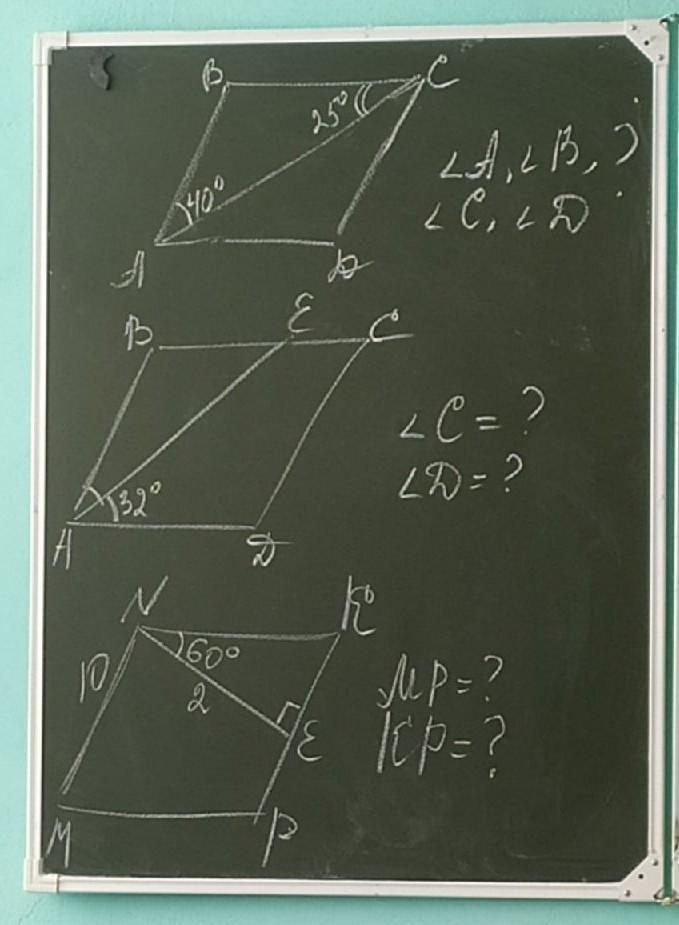 B C
25°
40°
A D
∠A, ∠B, ?
∠C, ∠D
B E C
32°
A D
∠C = ?
∠D = ?
N K
60°
10
2
E
M P
MP = ?
KP = ?